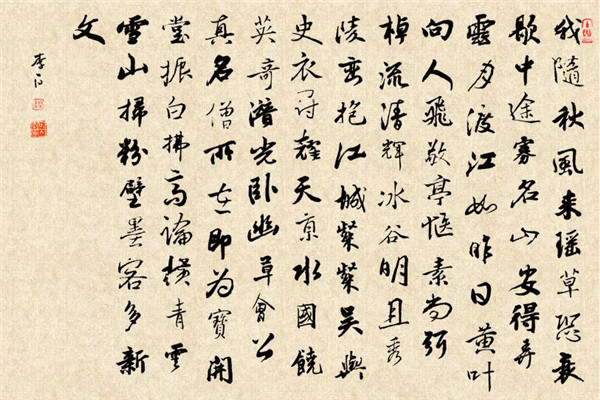 我隨秋風来瑶草恐衰
歇中途寡名山安得弄
雲月渡江如昨日黄叶
向人飛敬亭惬素尚弭
棹流清輝冰谷明且秀
陵峦抱江城粲粲吴與
史衣冠耀天京水國饒
英哥潜光卧幽草會公
真名僧所在即为寶開
堂振白拂高論横青雲
雪山掃粉壁墨客多新
文
李白